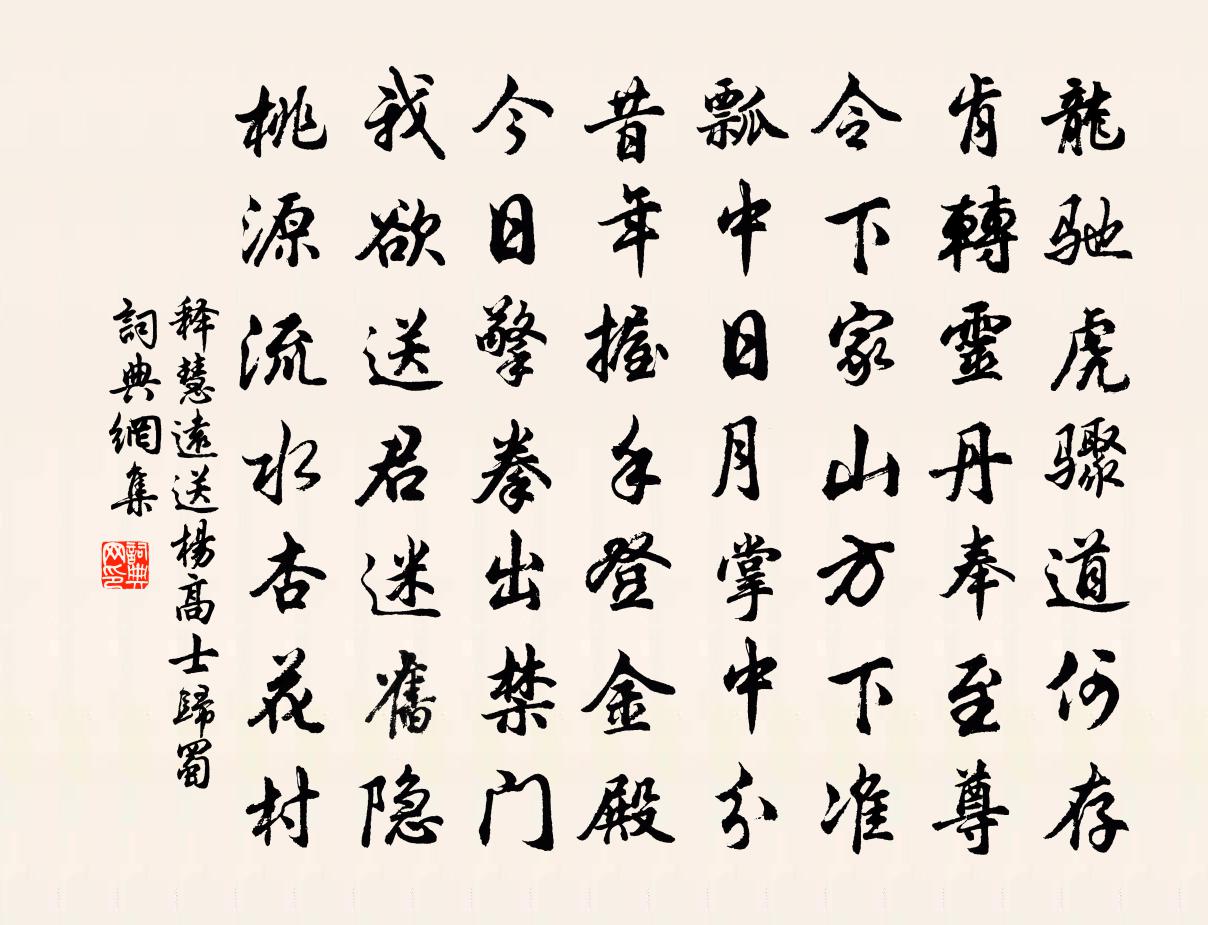 龍驰虎骤道何存
肯轉靈丹奉至尊
令下家山方下准
瓢中日月掌中分
昔年握手登金殿
今日擎拳出禁门
我欲送君迷舊隐
桃源流水杏花村
释慧遠送楊高士歸蜀
詞典網集
詞典网印